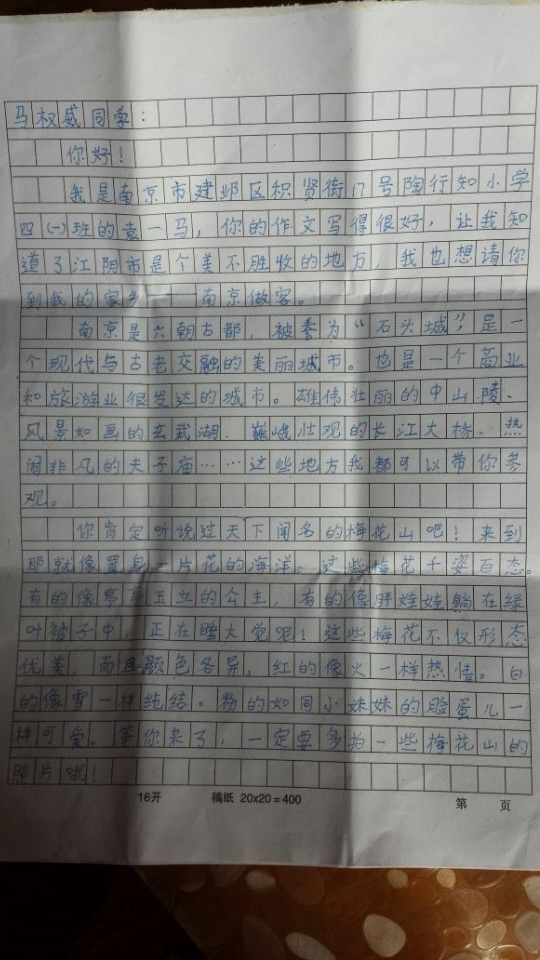 马权威同学:
你好!
我是南京市建邺区积贤街17号陶行知小学
四(一)班的袁一马,你的作文写得很好,让我知
道了江阴市是个美不胜收的地方,我也想请你
到我的家乡——南京做客。
南京是六朝古都,被誉为“石头城”,是一
个现代与古老交融的美丽城市。也是一个商业
和旅游业很发达的城市。雄伟壮丽的中山陵、
风景如画的玄武湖、巍峨壮观的长江大桥、热
闹非凡的夫子庙……这些地方我都可以带你参
观。
你肯定听说过天下闻名的梅花山吧!来到
那就像置身一片花的海洋。这些梅花千姿百态。
有的像亭亭玉立的公主,有的像胖娃娃躺在绿
叶被子中,正在睡大觉呢!这些梅花不仅形态
优美,而且颜色各异。红的像火一样热情。白
的像雪一样纯结。粉的如同小妹妹的脸蛋儿一
样可爱。等你来了,一定要多拍一些梅花山的
照片哦!
16开 稿纸 20x20=400 第 页